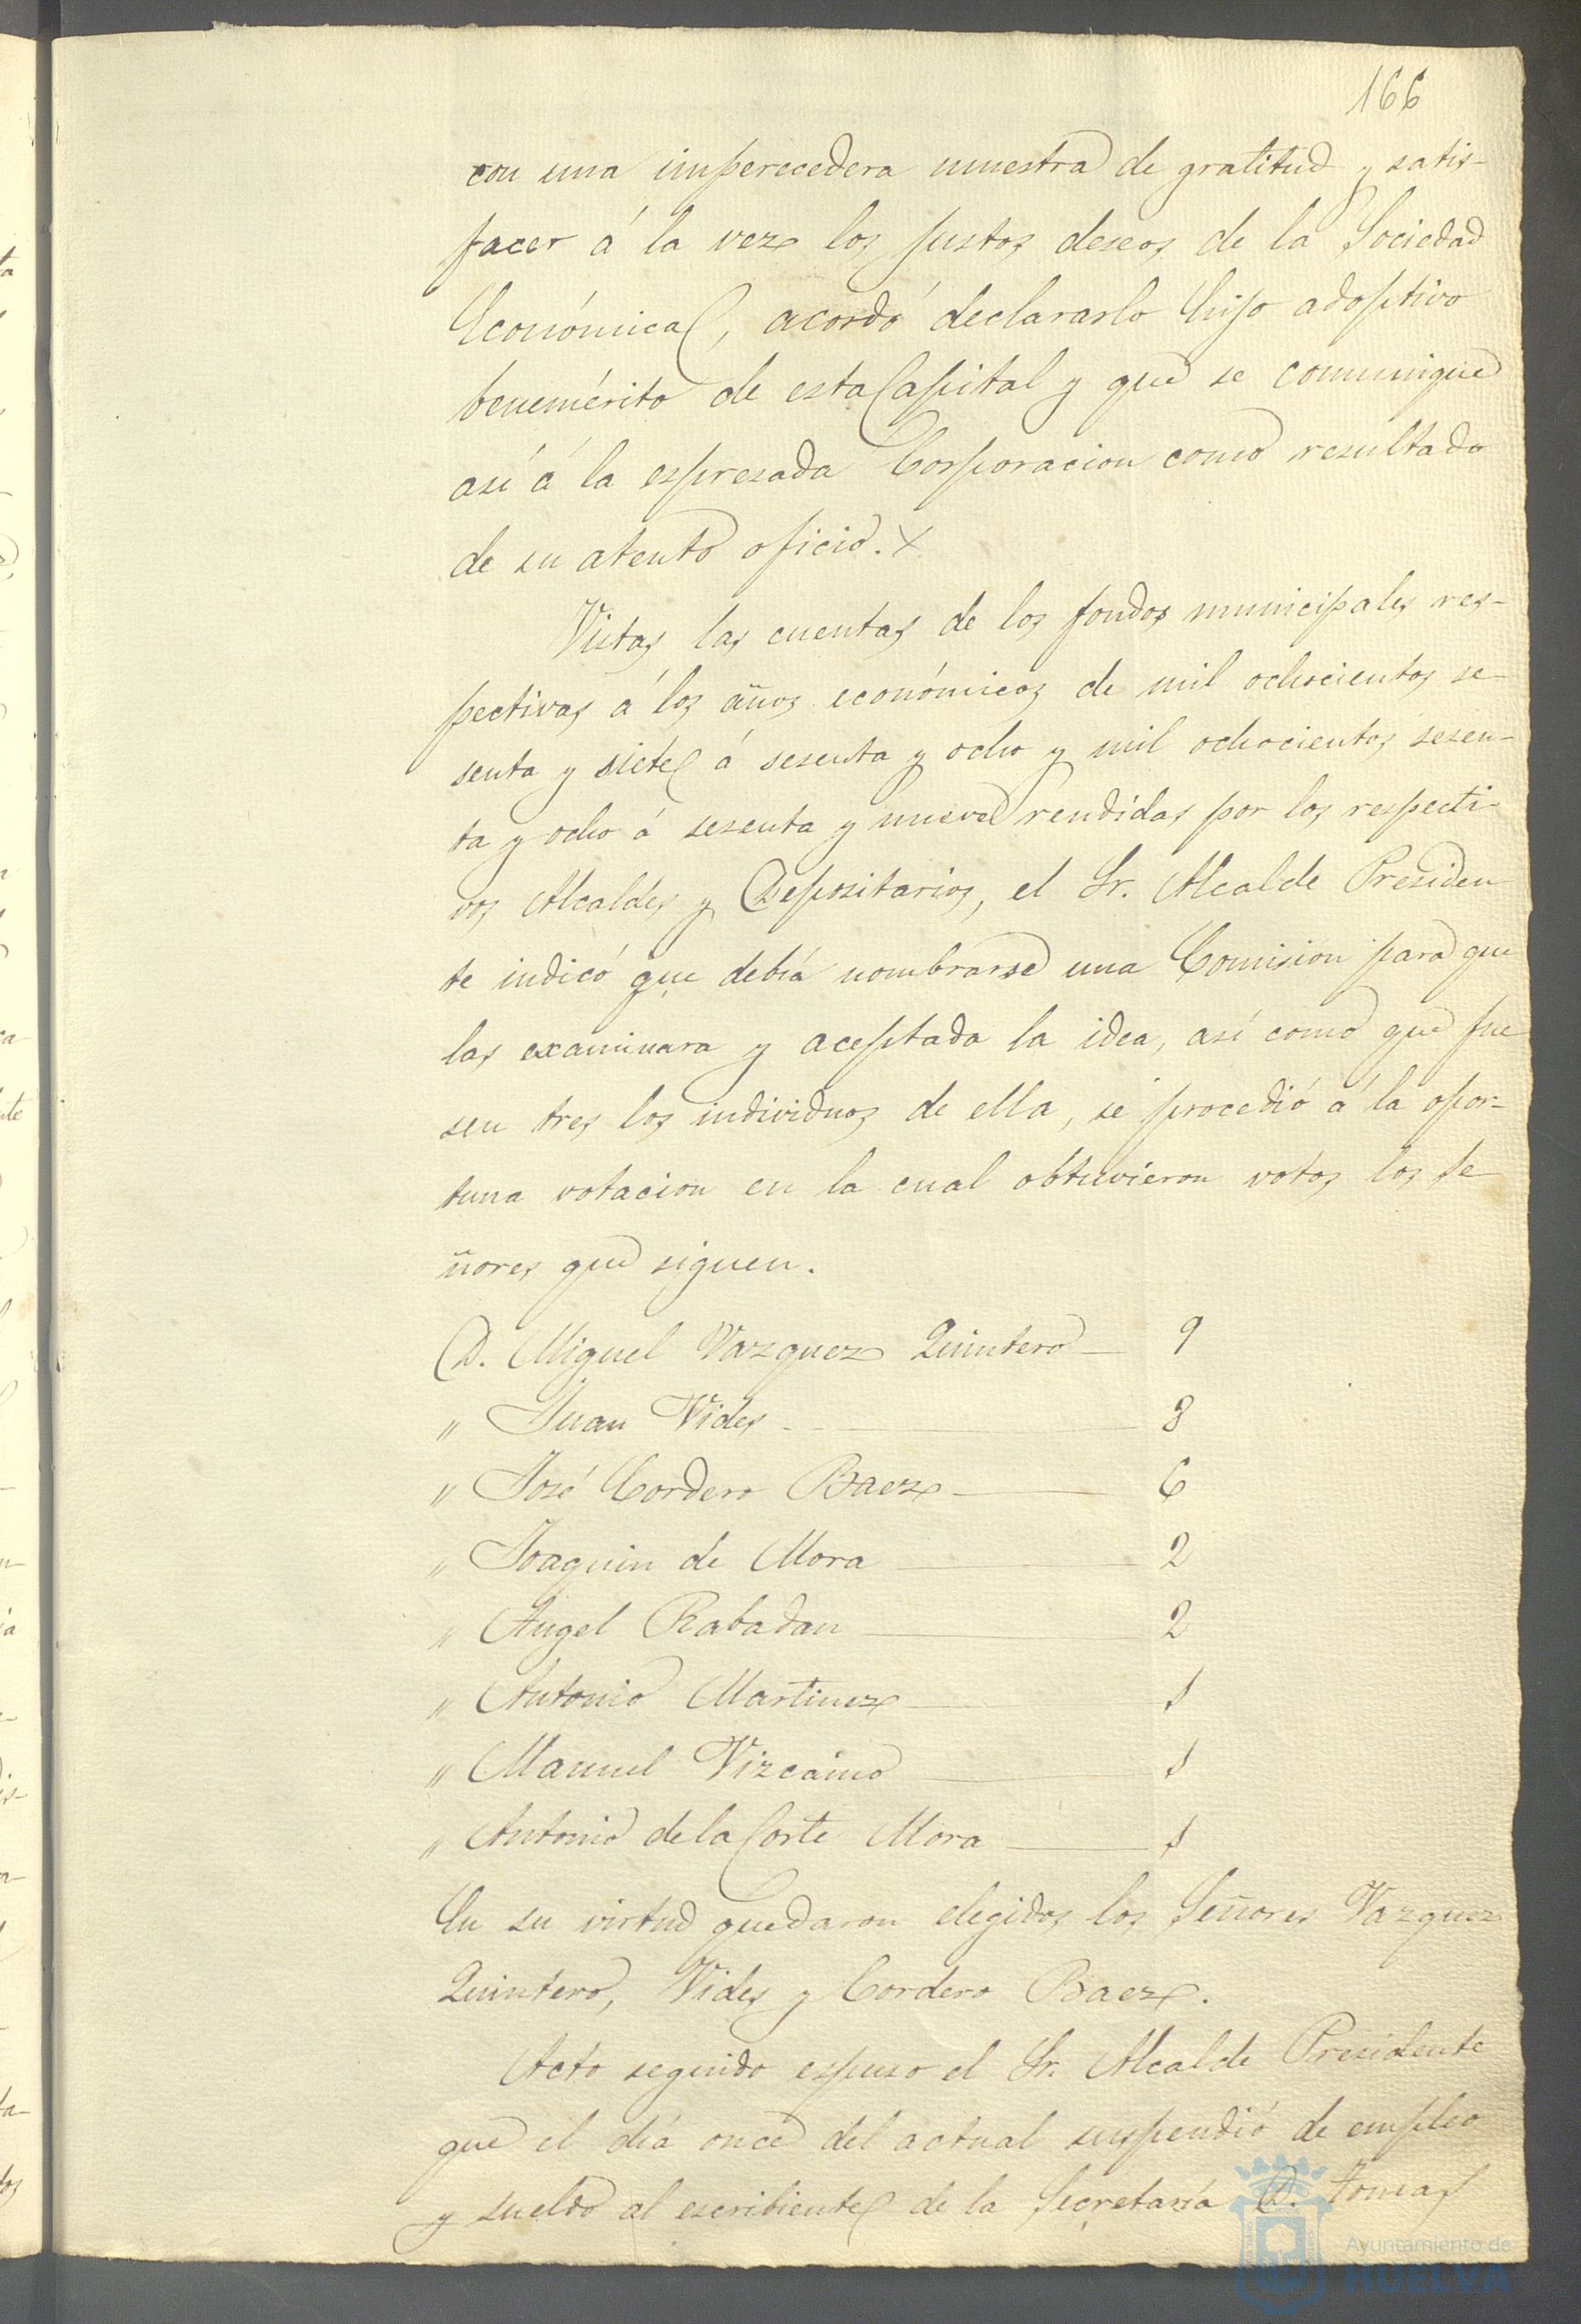 166
con una imperecedera muestra de gratitud y satis-
facer á la vez los justos deseos de la Sociedad
Económica, acordó declararlo hijo adoptivo
benemérito de esta Capital y que se comunique
así á la espresada Corporacion como resultado
de su atento oficio. X
Vistas las cuentas de los fondos municipales res-
pectivas á los años económicos de mil ochocientos se-
senta y siete á sesenta y ocho y mil ochocientos sesen-
ta y ocho á sesenta y nueve rendidas por los respecti-
vos Alcaldes y Depositarios, el Sr. Alcalde Presiden-
te indicó que debía nombrarse una Comision para que
las examinara y aceptada la idea, así como que fue
sen tres los individuos de ella, se procedió á la opor-
tuna votacion en la cual obtuvieron votos los Se-
ñores que siguen.
D. Miguel Vazquez Quintero — 9
" Juan Vides — 8
" José Cordero Baez — 6
" Joaquin de Mora — 2
" Angel Rabadan — 2
" Antonio Martinez — 1
" Manuel Vizcaino — 1
" Antonio de la Corte Mora — 1
En su virtud quedaron elegidos los Señores Vazquez
Quintero, Vides y Cordero Baez.
Acto seguido espuso el Sr. Alcalde Presidente
que el día once del actual suspendió de empleo
y sueldo al escribiente de la Secretaría D. Tomas
Ayuntamiento de
HUELVA